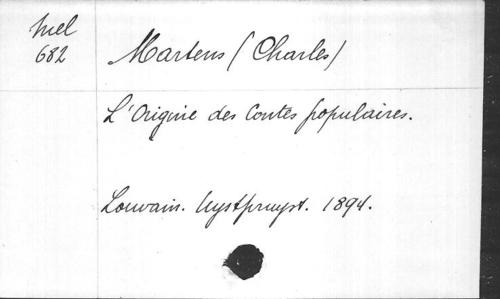 Mel
682
Martens (Charles)
L'Origine des Contes populaires.
Louvain. Uystpruyst. 1894.